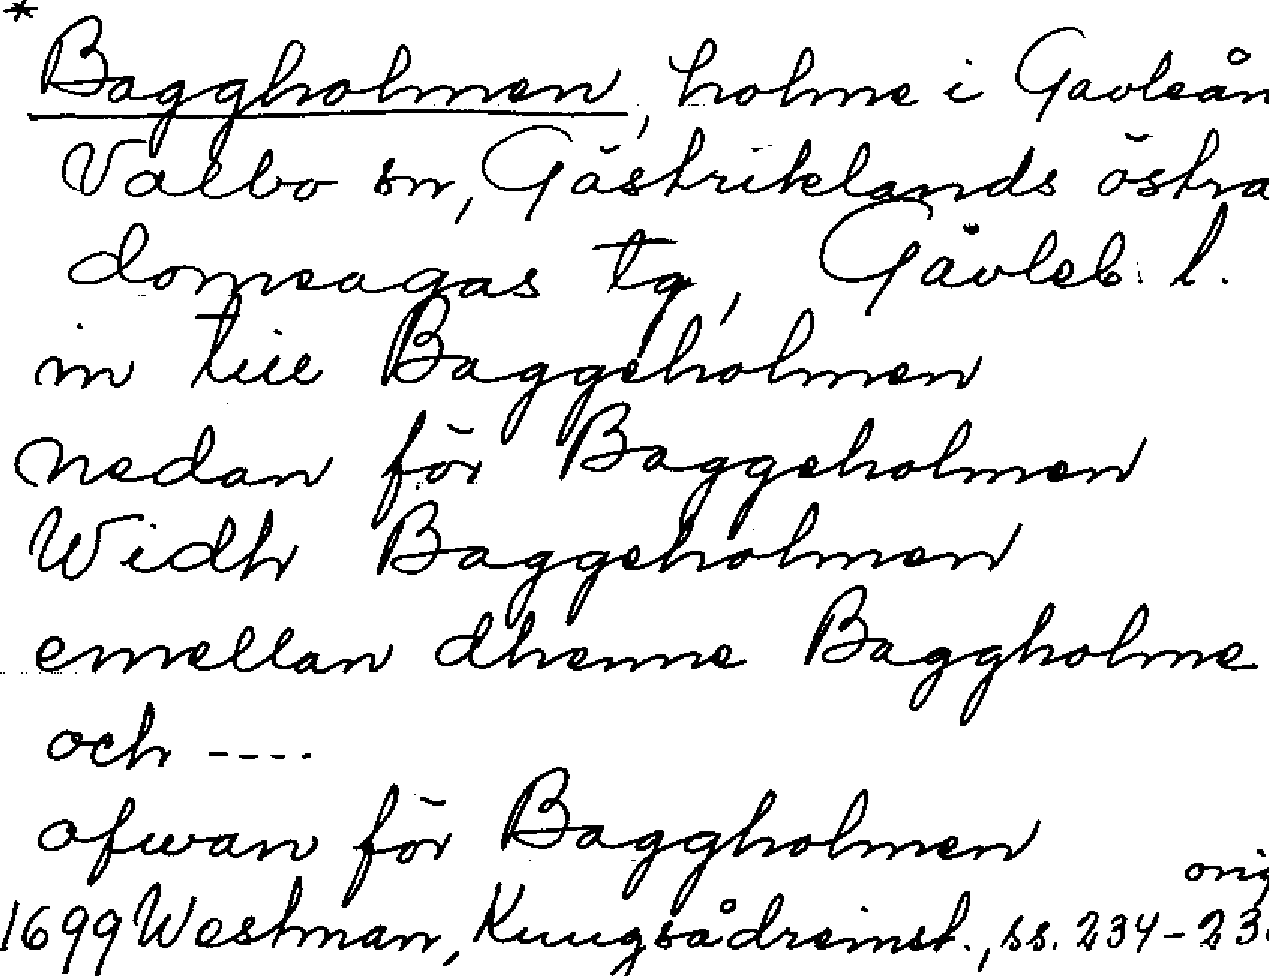 *
Baggholmen, holme i Gavleån
Valbo sn, Gästriklands östra
domsagas tg, Gävleb. l.
in till Baggeholmen
Nedan för Baggeholmen
Widh Baggeholmen
emellan dhenne Baggholme
och ----
ofwan för Baggholmen
orig
1699 Westman, Kungsådreinst., ss. 234-23